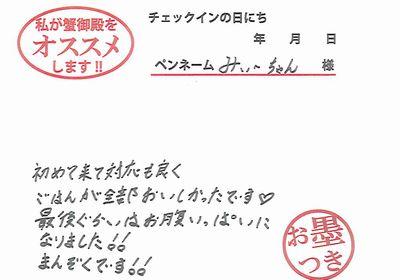 私が蟹御殿を
オススメ
します!!
チェックインの日にち
年 月 日
ペンネーム みぃ〜ちゃん 様
初めて来て対応も良く
ごはんが全部おいしかったです♡
最後ぐらいはお腹いっぱいに
なりました!!
まんぞくです!!
お墨
つき